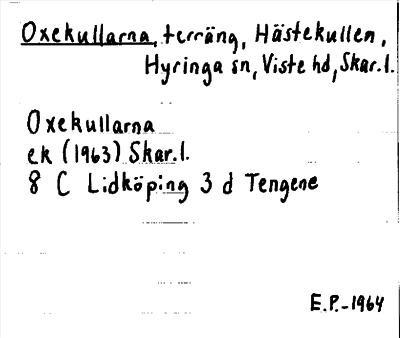 Oxekullarna, terräng, Hästekullen,
Hyringa sn, Viste hd, Skar.l.
Oxekullarna
ek (1963) Skar.l.
8 C Lidköping 3 d Tengene
E.P.-1964